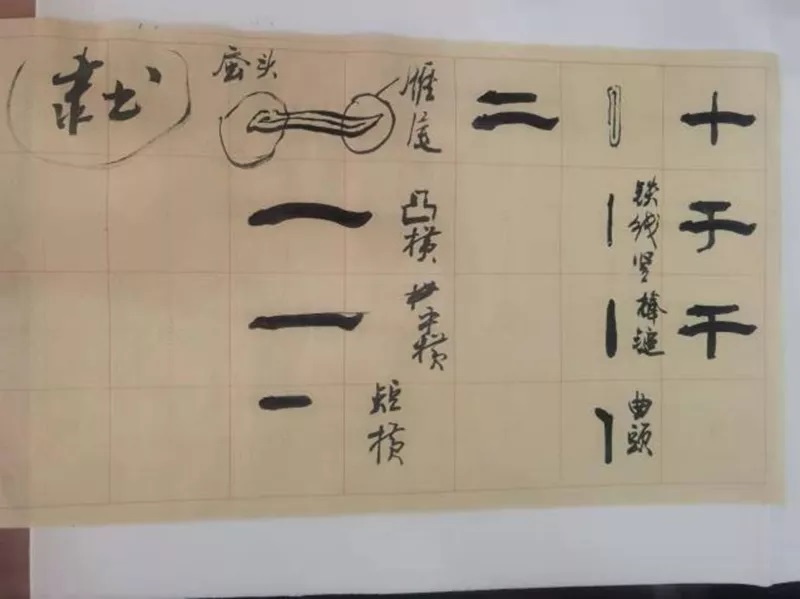 隶书
蚕头
雁尾
凸横
平横
短横
二
铁线竖
棒槌
曲頭
十
于
干